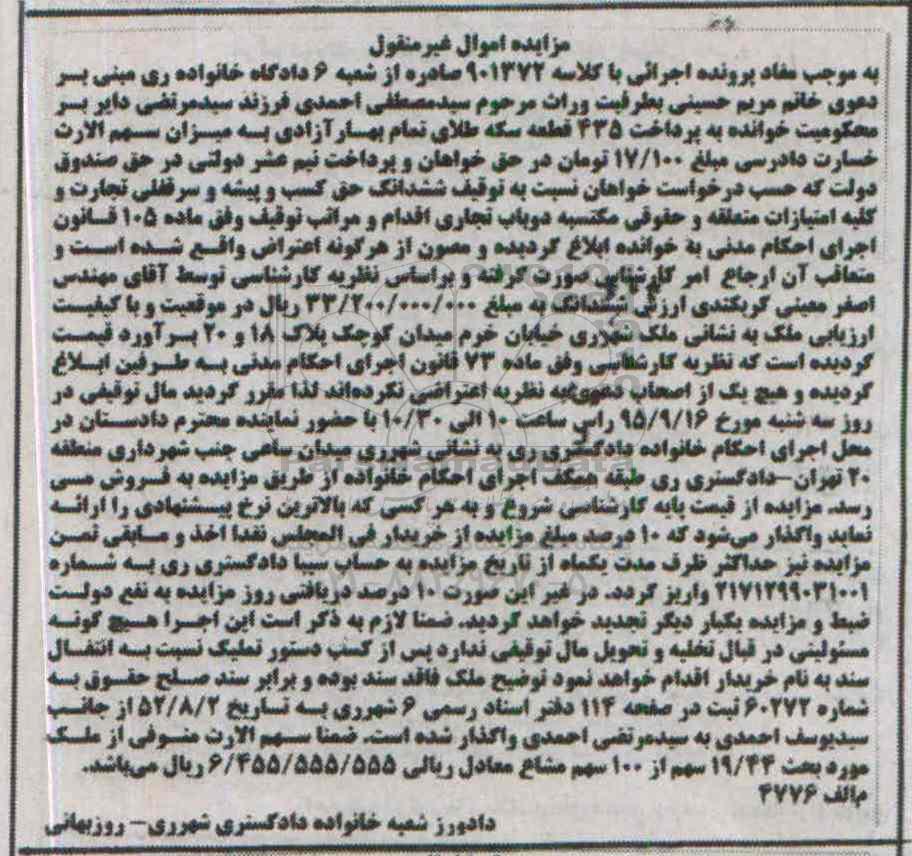 مزایده اموال غیرمنقول
به موجب مفاد پرونده اجرائی با کلاسه ۹۰۱۳۷۲ صادره از شعبه ۶ دادگاه خانواده ری مبنی بر
دعوی خانم مریم حسینی بطرفیت وراث مرحوم سیدمصطفی احمدی فرزند سیدمرتضی دایر بر
محکومیت خوانده به پرداخت ۴۳۵ قطعه سکه طلای تمام بهارآزادی به میزان سهم الارث
خسارت دادرسی مبلغ ۱۷/۱۰۰ تومان در حق خواهان و پرداخت نیم عشر دولتی در حق صندوق
دولت که حسب درخواست خواهان نسبت به توقیف ششدانگ حق کسب و پیشه و سرقفلی تجارت و
کلیه امتیازات متعلقه و حقوقی مکتسبه دوباب تجاری اقدام و مراتب توقیف وفق ماده ۱۰۵ قانون
اجرای احکام مدنی به خوانده ابلاغ گردیده و مصون از هرگونه اعتراض واقع شده است و
متعاقب آن ارجاع امر کارشناسی صورت گرفته و براساس نظریه کارشناسی توسط آقای مهندس
اصغر معینی گریکندی ارزش ششدانگ به مبلغ ۳۳/۲۰۰/۰۰۰/۰۰۰ ریال در موقعیت و با کیفیت
ارزیابی ملک به نشانی ملک شهرری خیابان خرم میدان کوچک پلاک ۱۸ و ۲۰ برآورد قیمت
گردیده است که نظریه کارشناسی وفق ماده ۷۳ قانون اجرای احکام مدنی به طرفین ابلاغ
گردیده و هیچ یک از اصحاب دعوی به نظریه اعتراضی نکرده‌اند لذا مقرر گردید مال توقیفی در
روز سه شنبه مورخ ۹۵/۹/۱۶ راس ساعت ۱۰ الی ۱۰/۳۰ با حضور نماینده محترم دادستان در
محل اجرای احکام خانواده دادگستری ری به نشانی شهرری میدان نماز جنب شهرداری منطقه
۲۰ تهران-دادگستری ری طبقه همکف اجرای احکام خانواده از طریق مزایده به فروش می
رسد. مزایده از قیمت پایه کارشناسی شروع و به هر کسی که بالاترین نرخ پیشنهادی را ارائه
نماید واگذار می‌شود که ۱۰ درصد مبلغ مزایده از خریدار فی المجلس نقدا اخذ و مابقی ثمن
مزایده نیز حداکثر ظرف مدت یکماه از تاریخ مزایده به حساب سیبا دادگستری ری به شماره
۲۱۷۱۲۹۹۰۳۱۰۰۱ واریز گردد. در غیر این صورت ۱۰ درصد دریافتی روز مزایده به نفع دولت
ضبط و مزایده یکبار دیگر تجدید خواهد گردید. ضمنا لازم به ذکر است این اجرا هیچ گونه
مسئولیتی در قبال تخلیه و تحویل مال توقیفی ندارد پس از کسب دستور تملیک نسبت به انتقال
سند به نام خریدار اقدام خواهد نمود توضیح ملک فاقد سند بوده و برابر سند صلح حقوق به
شماره ۶۰۲۷۲ ثبت در صفحه ۱۱۴ دفتر اسناد رسمی ۶ شهرری به تاریخ ۵۲/۸/۲ از جانب
سیدیوسف احمدی به سیدمرتضی احمدی واگذار شده است. ضمنا سهم الارث متوفی از ملک
مورد بحث ۱۹/۴۴ سهم از ۱۰۰ سهم مشاع معادل ریالی ۶/۴۵۵/۵۵۵/۵۵۵ ریال می‌باشد.
م‌الف ۴۷۷۶
دادورز شعبه خانواده دادگستری شهرری- روزبهانی